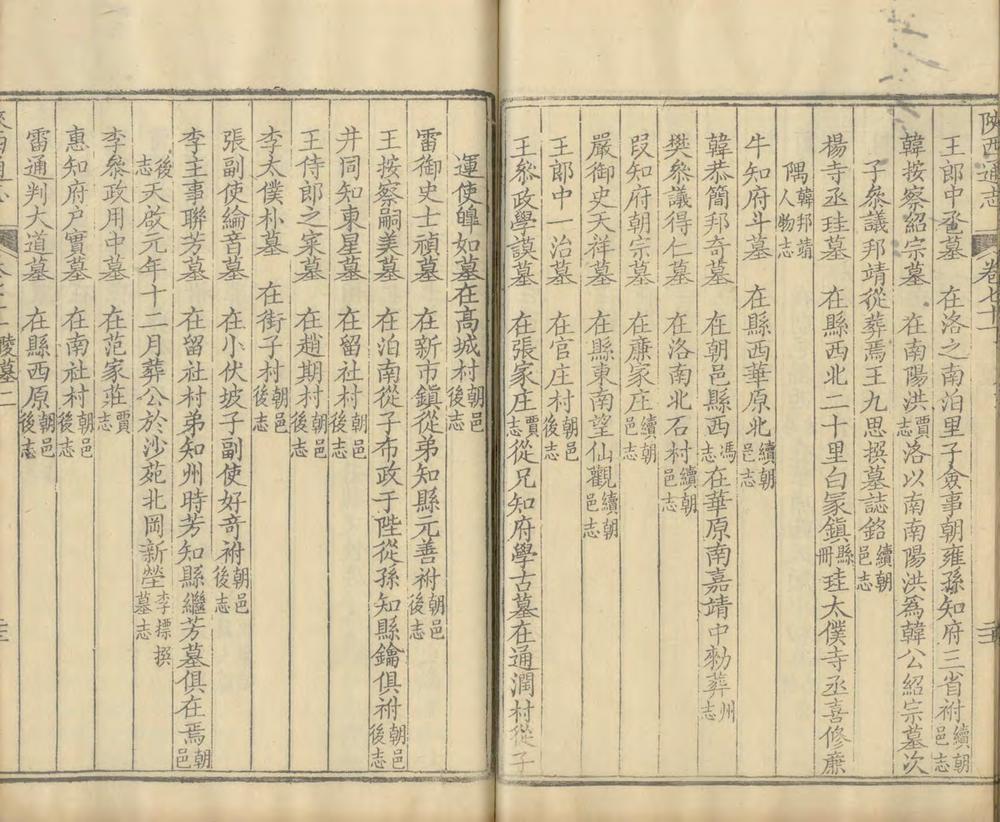 陝西通志 卷七十
王郎中𠃵墓 在洛之南泊里子僉事朝雍孫知府三省祔續朝邑志
韓按察紹宗墓 在南陽洪賈志洛以南南陽洪爲韓公紹宗墓次
子叅議邦靖從葬焉王九思撰墓誌銘續朝邑志
楊寺丞珪墓 在縣西北二十里白冡鎮縣冊珪太僕寺丞喜修廉
隅韓邦靖人物志
牛知府斗墓 在縣西華原北續朝邑志
韓恭簡邦奇墓 在朝邑縣西馮志在華原南嘉靖中勑葬州志
樊叅議得仁墓 在洛南北石村續朝邑志
段知府朝宗墓 在亷家庄續朝邑志
嚴御史天祥墓 在縣東南望仙觀續朝邑志
王郎中一治墓 在官庄村朝邑後志
王叅政學謨墓 在張家庄賈志從兄知府學古墓在通潤村從子
運使皥如墓在高城村朝邑後志
雷御史士禎墓 在新市鎮從弟知縣元善祔朝邑後志
王按察嗣美墓 在泊南從子布政于陛從孫知縣鑰俱祔朝邑後志
井同知東星墓 在留社村朝邑後志
王侍郎之寀墓 在趙期村朝邑後志
李太僕朴墓 在街子村朝邑後志
張副使綸音墓 在小伏坡子副使好竒祔朝邑後志
李主事聯芳墓 在留社村弟知州時芳知縣繼芳墓俱在焉朝邑
後志天啟元年十二月葬公於沙苑北岡新塋李摽撰墓志
李叅政用中墓 在范家莊賈志
惠知府戶實墓 在南社村朝邑後志
雷通判大道墓 在縣西原朝邑後志
陵墓二